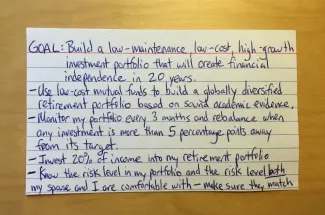 GOAL: Build a low-maintenance, low-cost, high-growth
investment portfolio that will create financial
independence in 20 years.
- Use low-cost mutual funds to build a globally diversified
retirement portfolio based on sound academic evidence.
- Monitor my portfolio every 3 months and rebalance when
any investment is more than 5 percentage points away
from its target.
- Invest 20% of income into my retirement portfolio
- Know the risk level in my portfolio and the risk level both
my spouse and I are comfortable with - make sure they match